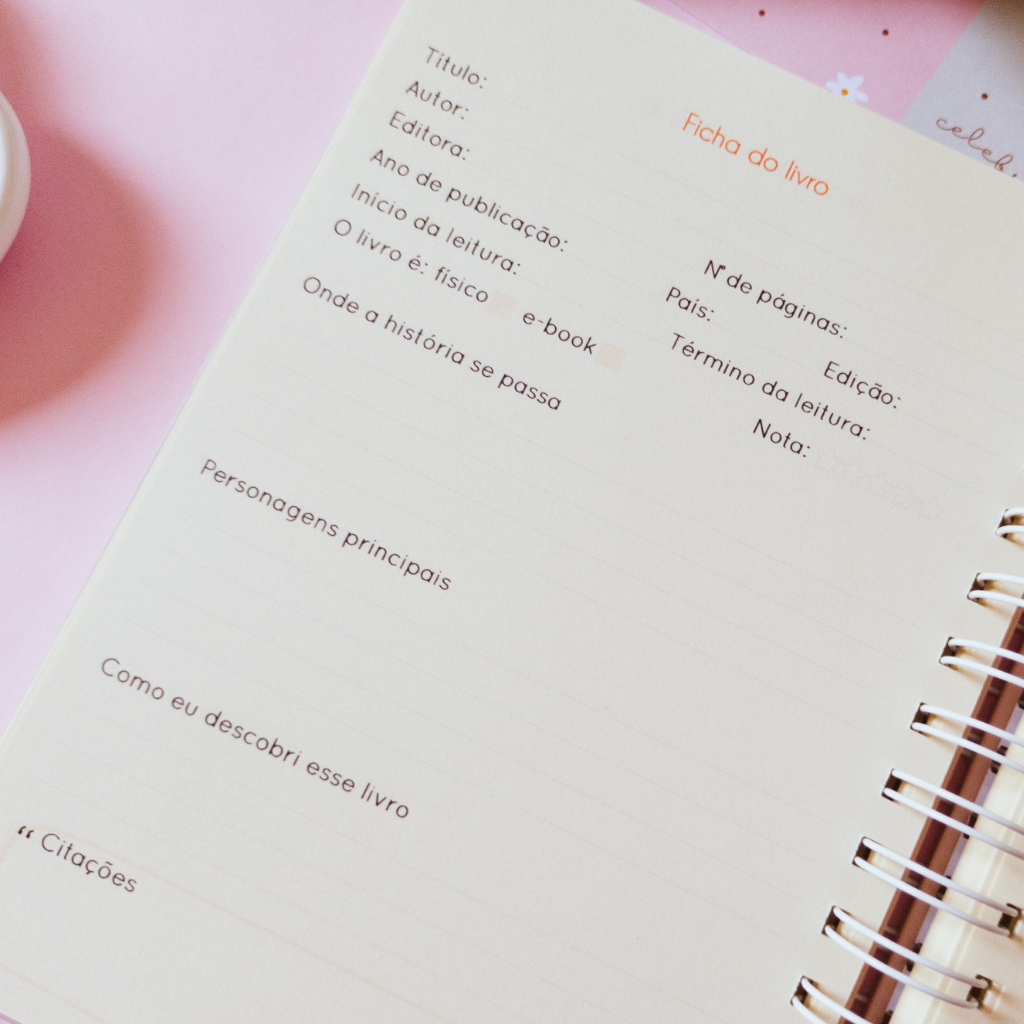 Ficha do livro
Título:
Autor:
Editora: Nº de páginas:
Ano de publicação: País: Edição:
Início da leitura: Término da leitura:
O livro é: físico e-book Nota:
Onde a história se passa
Personagens principais
Como eu descobri esse livro
“ Citações